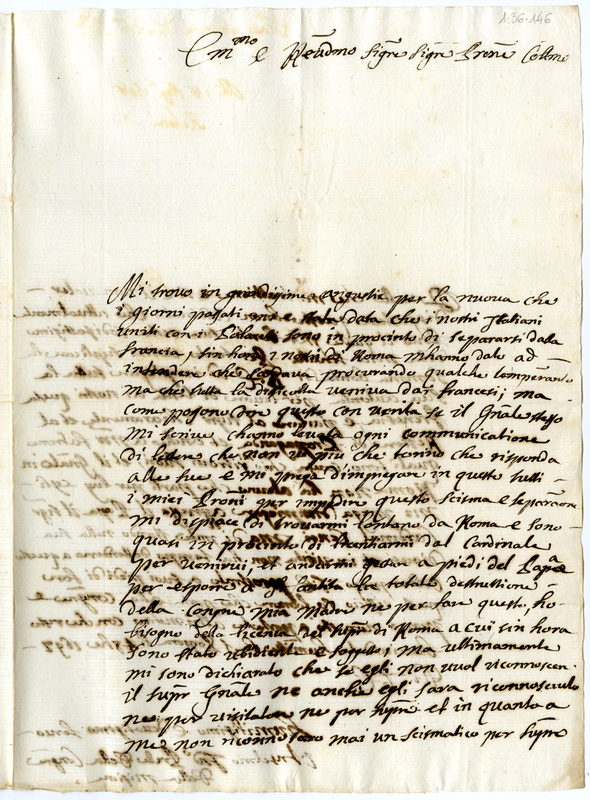 1-36-146
Em.mo e Reudmo Sigre Sigre Prone Colmo
Mi trovo in grandissime Angustie per la nuova che
i giorni passati mi e stata data che i nostri Italiani
uniti con i Polacchi sono in procinto di separarsi dalla
francia, sin hora i nostri di Roma m'hanno dato ad
intendere che s'andava procurando qualche temperamto
ma che tutta la dificolta veniva dai francesi; ma
come possono dir questo con verita se il Gnale stesso
mi scrive c'hanno levata ogni communicatione
di lettere che non vi piu che torino che risponda
alle sue e mi prega d'impiegare in questo tutti
i miei Proni per impedire questo scisma e separatione
mi dispiace di trovarmi lontano da Roma e sono
quasi in procinto di licentiarmi dal Cardinale
per venirvi, et andarmi a piedi del Papa
per esporre a Santita la totale destruttione
della Congne mia Madre ne per far questo, ho
bisogno della licenza del supre di Roma a cui sin hora
sono stato ubidiente e soggetto; ma ultimamente
mi sono dichiarato che se egli non vuol riconnoscer
il supr Gnale ne anche egli sara riconnosciuto
ne per visitator ne per supre et in quanto a
me non riconnoscero mai un scismatico per supre